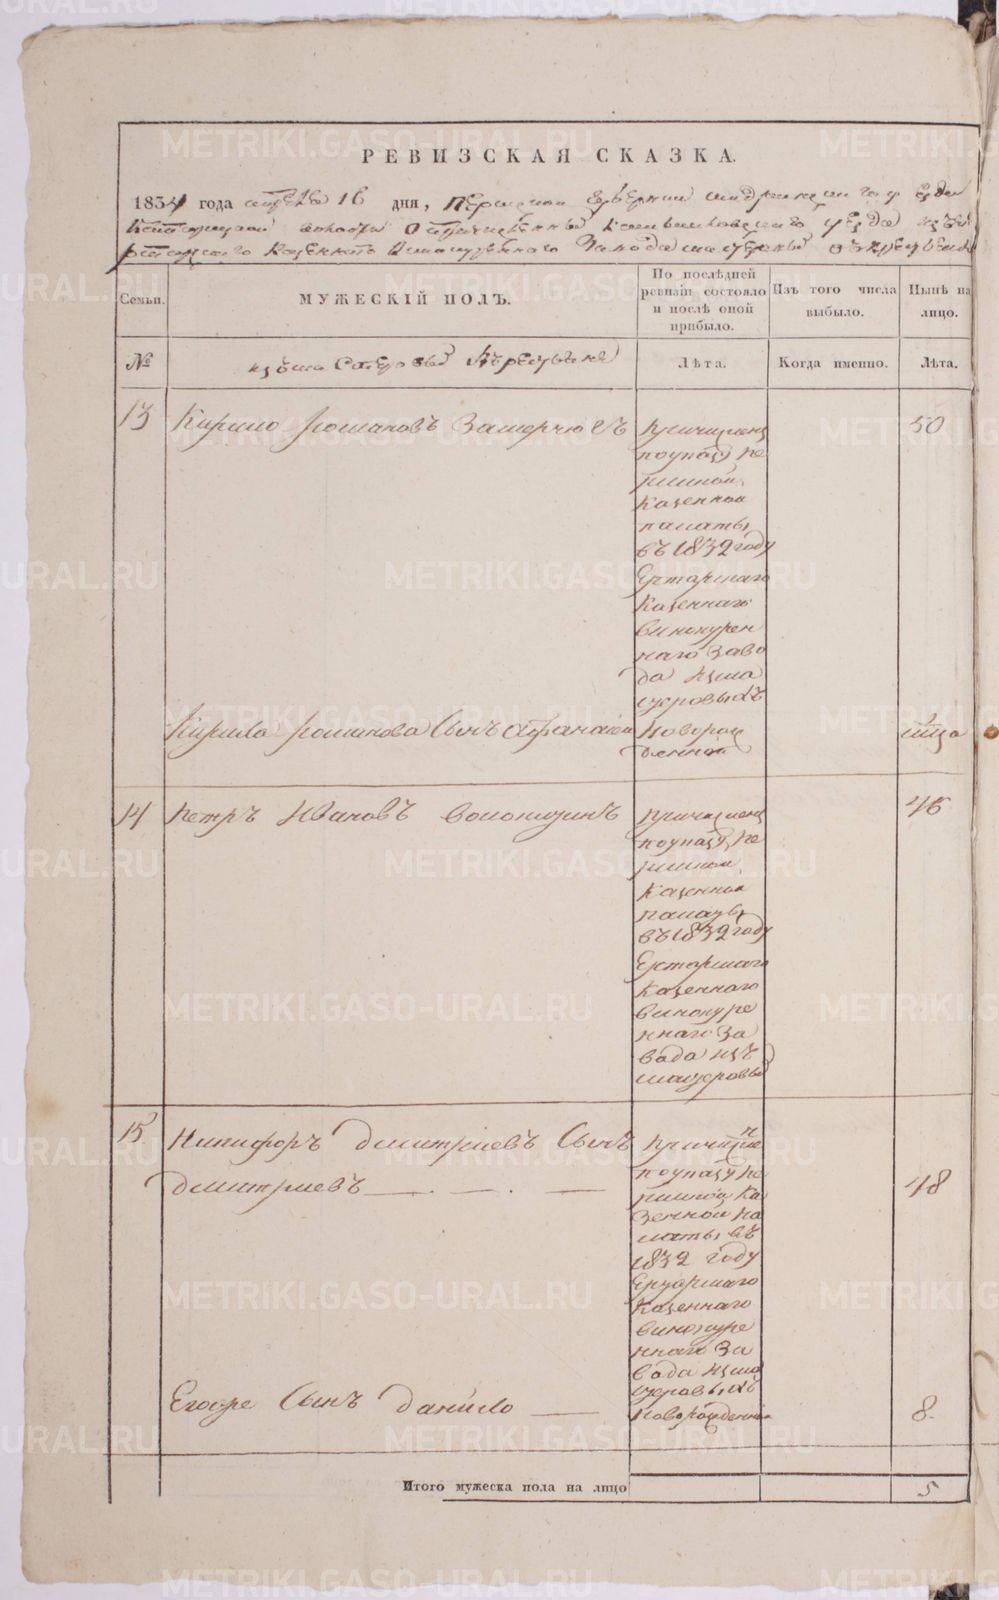 РЕВИЗСКАЯ СКАЗКА.
1834 года апреля 16 дня, Пермской губернии Шадринскаго уезда
Катайской волости
казеннаго винокуреннаго завода
Семьи.
МУЖЕСКІЙ ПОЛЪ.
По послѣдней ревизіи состояло и послѣ оной прибыло.
Изъ того числа выбыло.
Нынѣ на лицо.
№
измастеровыхъ
Лѣта.
Когда именно.
Лѣта.
13
Кирило Романовъ
50
Причислены
поуказу Пе
рмской
Казенной
палаты
въ 1832 году
Ертарскаго
Казеннаго
винокурен
наго заво
да изма
стеровыхъ
Кирила Романова Сынъ Афанасей
Новорож
денной
14
Петръ Ивановъ Волошинъ
46
Причислены
поуказу Пе
рмской
Казенной
палаты
въ 1832 году
Ертарскаго
Казеннаго
винокуре
ннаго за
вода изъ
мастеровыхъ
15
Никифоръ Дмитриевъ Сынъ
Дмитриевъ
48
Причисле
поуказу Пе
рмской Ка
зенной па
латы въ
1832 году
Ертарскаго
Казеннаго
винокуре
ннаго за
вода изма
стеровыхъ
Егоже Сынъ Данило
Новорожденной
8.
Итого мужеска пола на лицо
5
METRIKI.GASO-URAL.RU